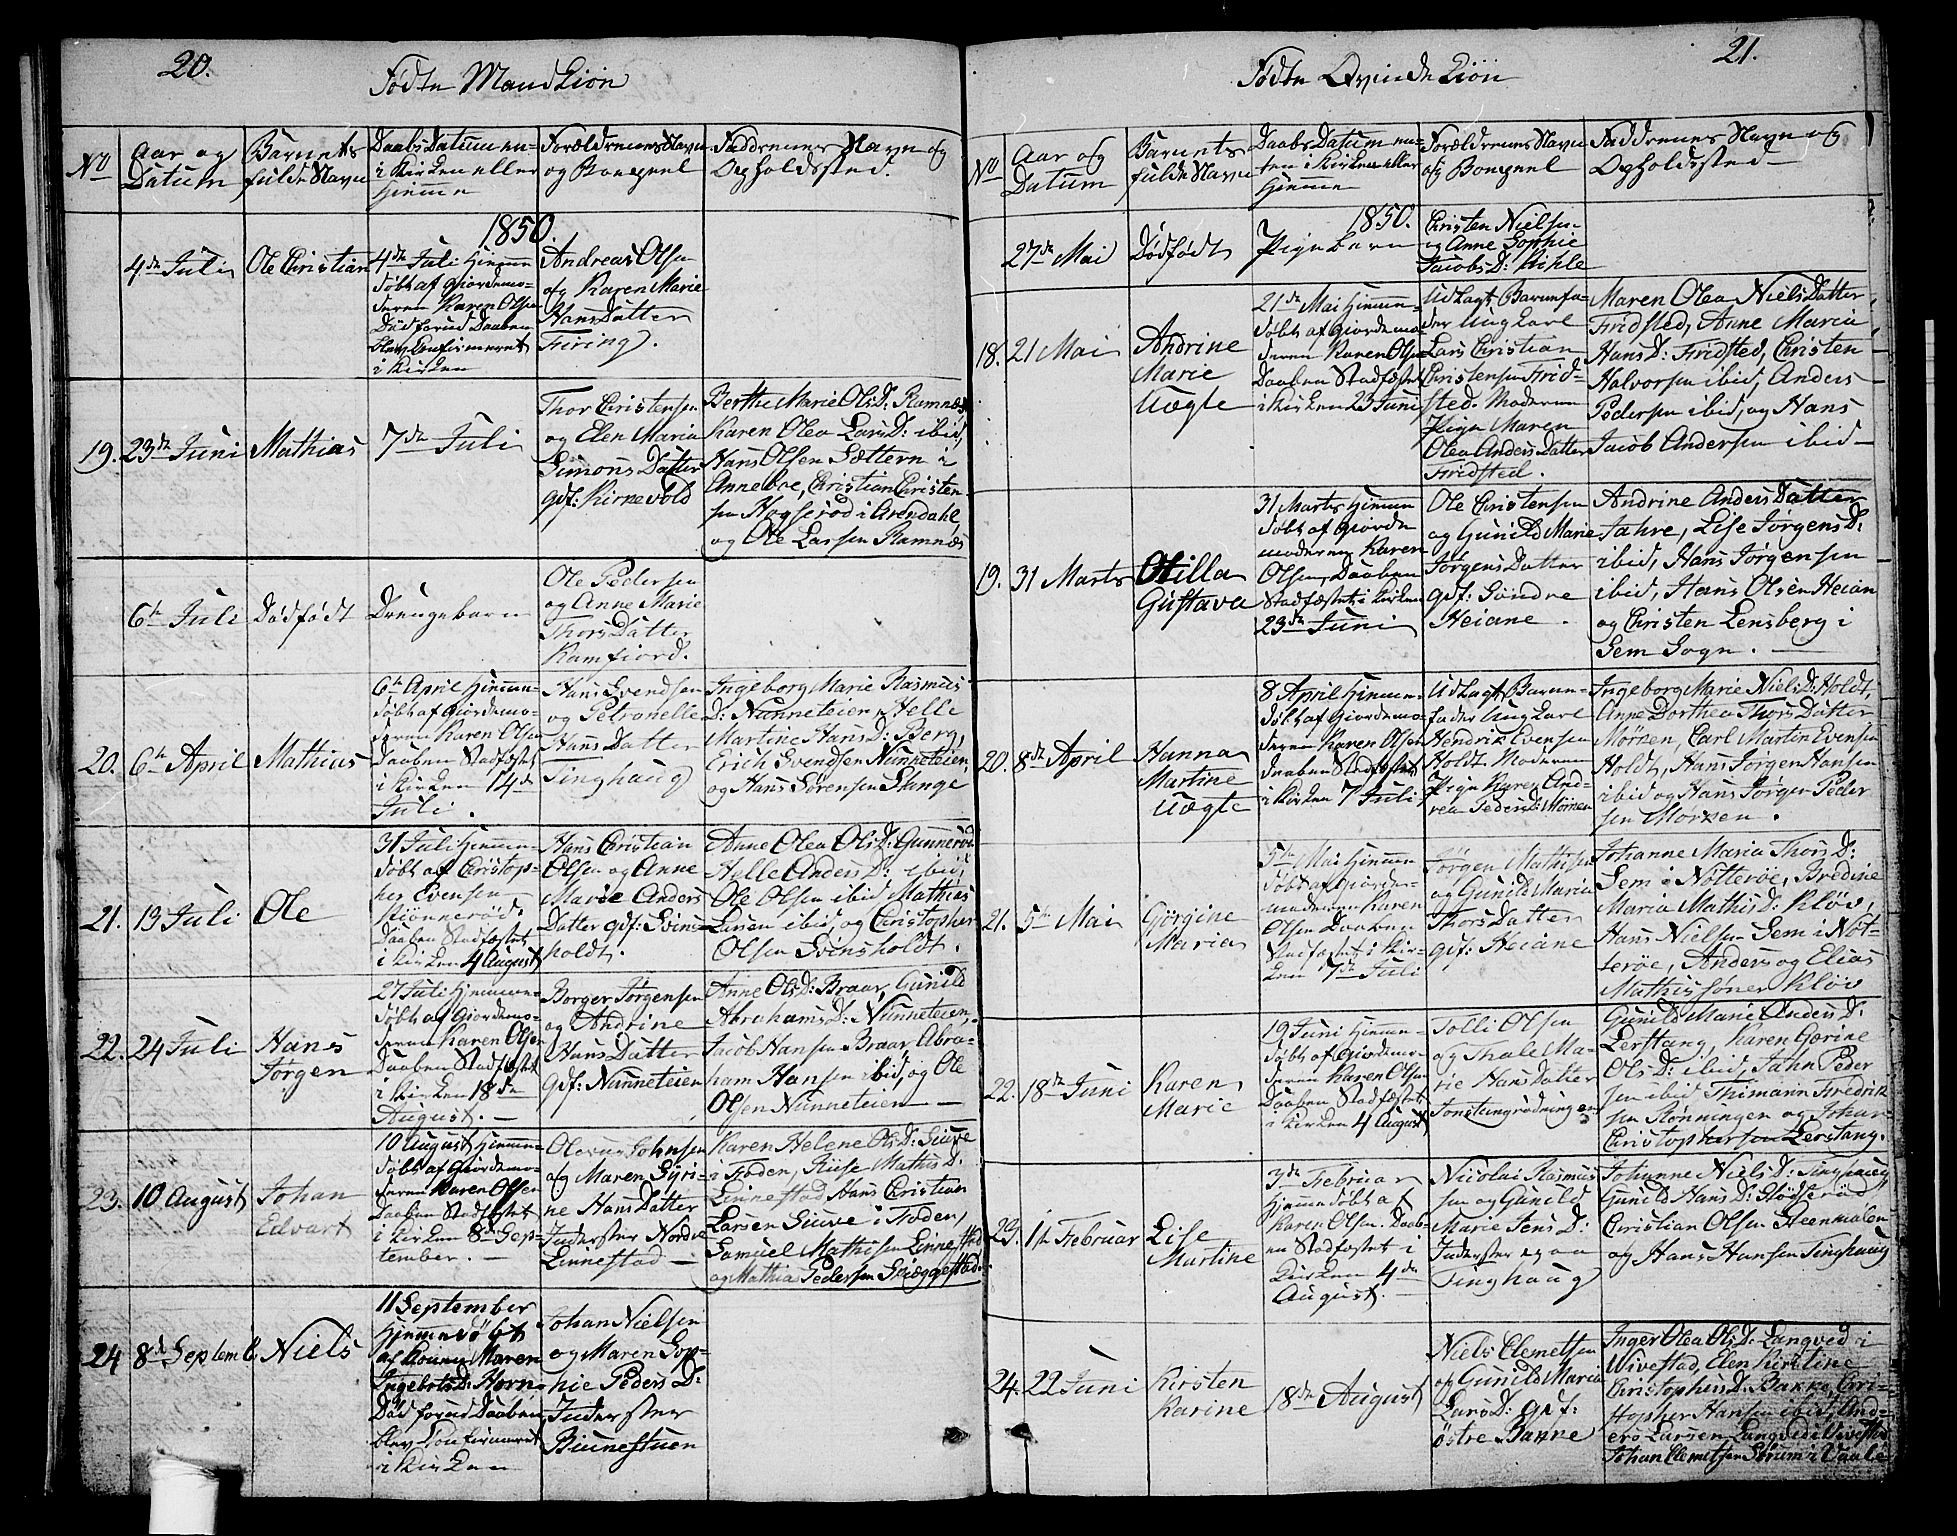 20.
Født Mandkiøn
No
Aar og
Datum
Barnets
fulde Navn
Daabs Datum en-
i Kirken eller
Hiemme
Forældrenes Navn
og Boepæl
Faddrenes Navn og
Opholdssted.
1850
4de Juli
Ole Christian
4de Juli Hiemme
døbt af Giordemo-
deren Karen Olsen
Død forud Daaben
blev Confirmeret
i Kirken
Andreas Olsen
og Karen Marie
Hans Datter
Firing.
19.
23de Juni
Mathias
7de Juli
Thor Christensen
og Elen Maria
Simons Datter
gdf: Kirkevold
Berthe Marie Ols D: Ramnæs
Karen Olea Lars D: ibid,
Hans Olsen Sættern i
Annebre, Christian Christen-
sen Hogserød i Arendahl,
og Ole Larsen Ramnæs
6te Juli
Dødfødt
Drengebarn
Ole Pedersen
og Anne Marie
Thors Datter
Ramfiord.
20.
6te April
Mathias
6te April Hiemme-
døbt af Giordemo-
deren Karen Olsen
Daaben Stadfæstet
i Kirken 14de
Juli.
Hans Svendsen
og Petronelle
Hans Datter
Tinghaug
Ingeborg Marie Rasmus
D: Nunneteien, Helle
Martine Hans D: Berg,
Erich Svendsen Nunneteien,
og Hans Sørensen Skange
21.
13 Juli
Ole
31 Juli Hiemme-
døbt af Christop-
her Evensen
Kiønnerød.
Daaben Stadfæstet
i Kirken 4 August
Hans Christian
Olsen og Anne
Marie Anders
Datter gdf: Svins-
holdt.
Anne Olea Ols D: Gunnerød
Helle Anders D: ibid,
Ole Olsen ibid, Mathias
Larsen ibid, og Christopher
Olsen Svinsholdt.
22.
24 Juli
Hans
Jørgen
27 Juli Hjemme-
døbt af Giordemo-
deren Karen Olsen
Daaben Stadfæstet
i Kirken 18de
August. -
Borger Jørgensen
og Andrine
Hans Datter
gdf: Nunneteien
Anne Ols D: Braar, Gunild
Abrahams D: Nunneteien,
Jacob Hansen Braar, Abra-
ham Hansen ibid, og Ole
Olsen Nunneteien -
23.
10 August
Johan
Edvart
10 August Hiemme-
døbt af Giordemo-
deren Karen Olsen
Daaben Stadfæstet
i Kirken 8de Sep-
tember. -
Olevus Johnsen
og Maren Syri-
ne Hans Datter
Inderster Nordre
Linnestad -
Karen Helene Ols D: Siuve
i Foden, Riise Mathis D:
Linnestad, Hans Christian
Larsen Siuve i Foden,
Samuel Mathisen Linnestad
og Mathias Pedersen Skieggestad
24
8de Septemb.
Niels
11 September
Hjemmedøbt
af Konen Maren
Ingebrets D: Horn
Død forud Daaben
blev Confirmeret
i Kirken
Johan Nielsen
og Maren Sop-
hie Peders D:
Inderster
Biunestuen
21.
Født Qvindekiön
No
Aar og
Datum
Barnets
fulde Navn
Daabs Datum en-
ten i Kirken eller
Hiemme
Forældrenes Navn
og Boepæl
Faddrenes Navn og
Opholdssted -
1850.
27de Mai
Dødfødt
Pigebarn
Christen Nielsen
og Anne Sophie
Jacobs D: Kihle
18.
21 Mai
Andrine
Marie
Uægte
21de Mai Hiemme-
døbt af Giordemo-
deren Karen Olsen
Daaben Stadfæstet
i Kirken 23 Juni
Udlagt Barnefa-
der Ungkarl
Lars Christian
Christensen Frid-
sted. Moderen
Pige Maren
Olea Anders Datter
Fridsted.
Maren Olea Niels Datter
Fridsted, Anne Maria
Hans D: Fridsted, Christen
Halvorsen ibid, Anders
Pedersen ibid, og Hans
Jacob Andersen ibid -
19.
31 Marts
Otilla
Gustava
31 Marts Hiemme
døbt af Giorde
moderen Karen
Olsen, Daaben
Stadfæstet i Kirken
23de Juni
Ole Christensen
og Gunild Marie
Jørgens Datter
gdf: Søndre
Heiane.
Andrine Anders Datter
Jahre, Lise Jørgens D:
ibid, Hans Jørgensen
ibid, Hans Olsen Heian
og Christen Lensberg i
Sem Sogn. -
20.
8de April
Hanna
Martine
Uægte
8 April Hiemme-
døbt af Giordemo-
deren Karen Olsen
Daaben Stadfæstet
i Kirken 7 Juli
Udlagt Barne-
fader Ungkarl
Hendrik Evensen
Holdt. Moderen
Pige Karen And-
rea Peders D: Mørken
Ingeborg Marie Niels D: Holdt,
Anne Dorthea Thors Datter
Mørken, Carl Martin Evensen
Holdt, Hans Jørgen Hansen
ibid og Hans Jørgen Peder
sen Mørken.
21.
5te Mai
Görgine
Maria
5te Mai Hiemme
døbt af Giorde-
moderen Karen
Olsen Daaben
Stadfæstet i Kir-
ken 7de Juli
Jørgen Mathisen
og Gunild Maria
Thors Datter
gdf: Heiane
Johanne Maria Thors D:
Sem i Nøtterøe, Bredine
Maria Mathis D: Kløv,
Hans Nielsen Sem i Nøt-
terøe, Anders og Elias
Mathissøner Kløv
22.
18de Juni
Karen
Marie
19 Juni Hiemme-
døbt af Giordemo-
deren Karen Olsen
Daaben Stadfæstet
i Kirken 4 August
Tolli Olsen
og Thale Ma-
rie Hans Datter
Gunild Marie Anders D:
Lerstang, Karen Gorine
Ols D: ibid, John Peder
sen ibid, Thimann Fredrik
sen Rønningen og Johan
Christophersen Lerstang.
23.
1ste Februar
Lise
Martine
3de Februar
Hjemmedøbt af
Karen Olsen. Daab-
en Stadfæstet i
Kirken 4de
August. -
Nicolai Rasmus
sen og Gunild
Marie Jens D:
Inderster paa
Tinghaug
Johanne Niels D: Tinghaug
Gunild Hans D: Slødserød
Christian Olsen Steenmalen
og Hans Hansen Tinghaug
24.
22 Juni
Kirsten
Karine
18de August
Niels Clemetsen
og Gunild Maria
Lars D: gdf:
Østre Bakke
Inger Olea Ols D: Langved i
Wivestad, Elen Kirstine
Christophers D: Bakke, Chri-
stopher Hansen ibid, And-
ers Larsen Langved i Wivestad
Johan Clemetsen Sørum i Vaale